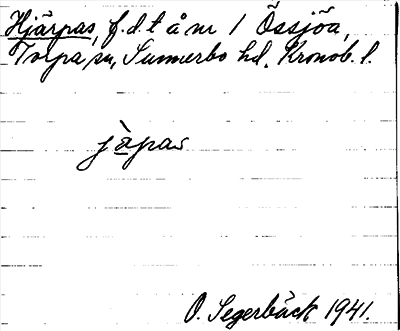 Hjärpas, f.d. t å nr 1 Össjöa,
Torpa sn, Sunnerbo hd, Kronob. l.
jàpas
O. Segerbäck 1941.